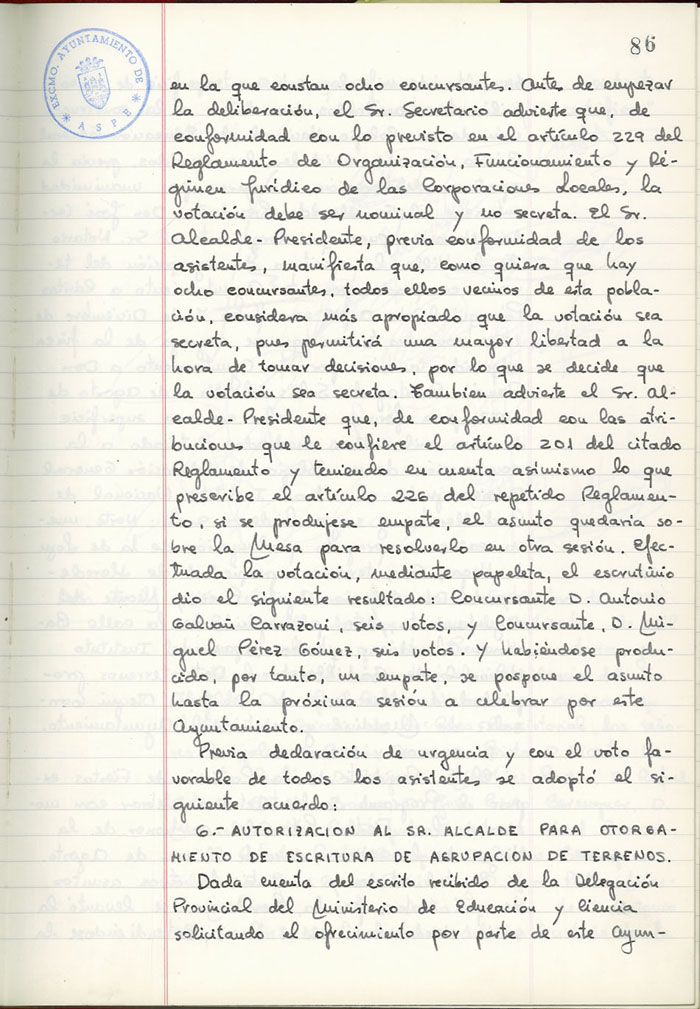 EXCMO. AYUNTAMIENTO DE
* ASPE *
86
en la que constan ocho concursantes. Antes de empezar
la deliberación, el Sr. Secretario advierte que, de
conformidad con lo previsto en el artículo 229 del
Reglamento de Organización, Funcionamiento y Ré-
gimen Jurídico de las Corporaciones Locales, la
votación debe ser nominal y no secreta. El Sr.
Alcalde-Presidente, previa conformidad de los
asistentes, manifiesta que, como quiera que hay
ocho concursantes, todos ellos vecinos de esta pobla-
ción, considera más apropiado que la votación sea
secreta, pues permitirá una mayor libertad a la
hora de tomar decisiones, por lo que se decide que
la votación sea secreta. Tambien advierte el Sr. Al-
calde-Presidente que, de conformidad con las atri-
buciones que le confiere el artículo 201 del citado
Reglamento y teniendo en cuenta asimismo lo que
prescribe el artículo 226 del repetido Reglamen-
to, si se produjese empate, el asunto quedaría so-
bre la Mesa para resolverlo en otra sesión. Efec-
tuada la votación, mediante papeleta, el escrutinio
dio el siguiente resultado: Concursante D. Antonio
Galvañ Carrazoni, seis votos, y Concursante, D. Mi-
guel Pérez Gómez, seis votos. Y habiéndose produ-
cido, por tanto, un empate, se pospone el asunto
hasta la próxima sesión a celebrar por este
Ayuntamiento.
Previa declaración de urgencia y con el voto fa-
vorable de todos los asistentes se adoptó el si-
guiente acuerdo:
6.- AUTORIZACION AL SR. ALCALDE PARA OTORGA-
MIENTO DE ESCRITURA DE AGRUPACION DE TERRENOS.
Dada cuenta del escrito recibido de la Delegación
Provincial del Ministerio de Educación y Ciencia
solicitando el ofrecimiento por parte de este Ayun-